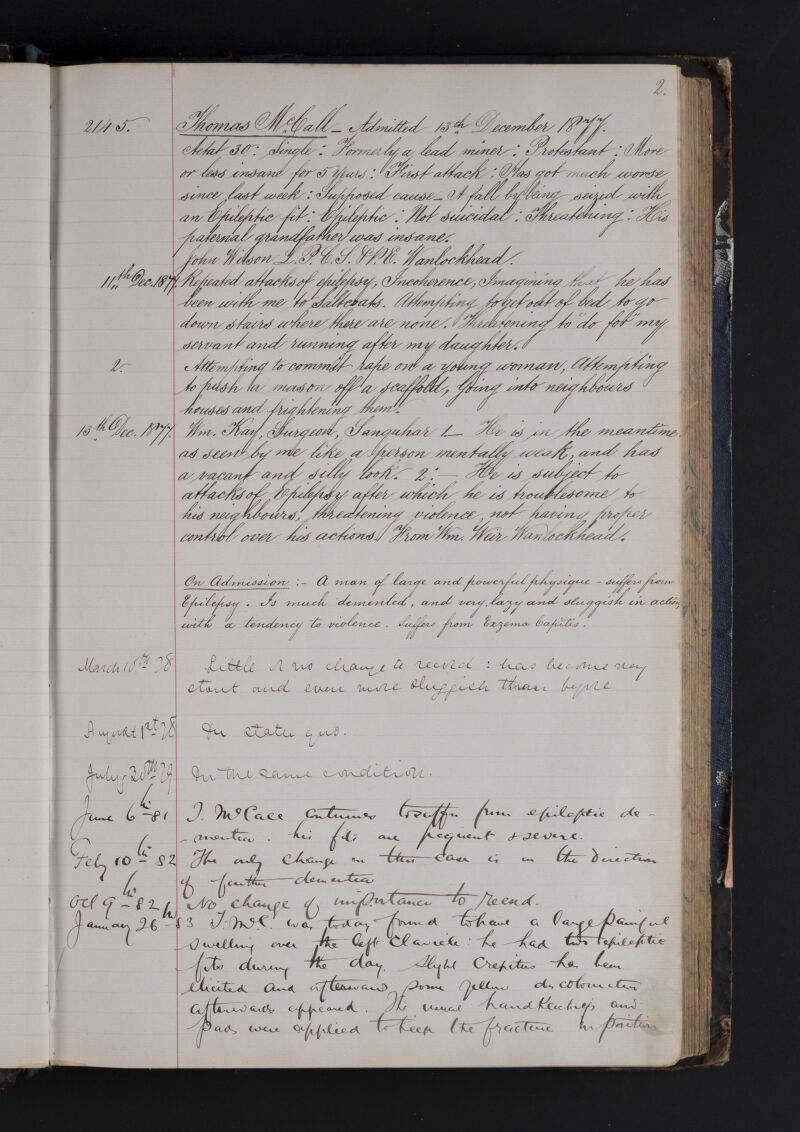 2.
2145. Thomas McCall – Admitted 13th December 1877.
Aetat 30: Single: Formerly a lead miner: Protestant: More
or less insane for 5 years: First attack: Has got much worse
since last week: Supposed cause – A fall by being seized with
an Epileptic fit: Epileptic: Not suicidal: Threatening: His
paternal grandfather was insane.
John Wilson L.P.C.S. Wanlockhead.
11th Dec. 1877. Repeated attacks of epilepsy, Incoherence, Imagining that he has
been with me to Saltcoats. Attempting to get out of bed to go
down stairs where there are none. Threatening to "do for" my
servant and running after my daughter.
2. Attempting to commit rape on a young woman, Attempting
to push a mason off a scaffold, going into neighbours
houses and frightening them.
13th Dec. 1877. Wm. Kay, Surgeon, Sanquhar 1 – He is in the meantime
as seen by me like a person mentally weak, and has
a vacant and silly look. 2: – He is subject to
attacks of Epilepsy after which he is troublesome to
his neighbours, threatening violence, not having proper
control over his actions. From Wm. Weir Wanlockhead.
On Admission :- A man of large and powerful physique – suffers from
Epilepsy. Is much demented, and very lazy and sluggish in action,
with a tendency to violence. Suffers from Exzema Capitis.
March 10th 78 Little or no change to record: has become very
stout and even more sluggish than before
August 1st 78 In statu quo.
July 30th 79 In the same condition.
June 6th 81 T. McCall continues to suffer from epileptic de-
-mentia. his fits are frequent & severe.
Feby 10th 82 The only change in this case is in the direction
of further dementia
Oct 9th 82 No change of importance to record.
January 26th 83 T. McC. was today found to have a large painful
swelling over the left clavicle: he had two epileptic
fits during the day. Slight crepitus has been
elicited and afterwards some yellow discolouration
afterwards appeared. The usual handkerchiefs and
pads were applied to keep the fracture in position